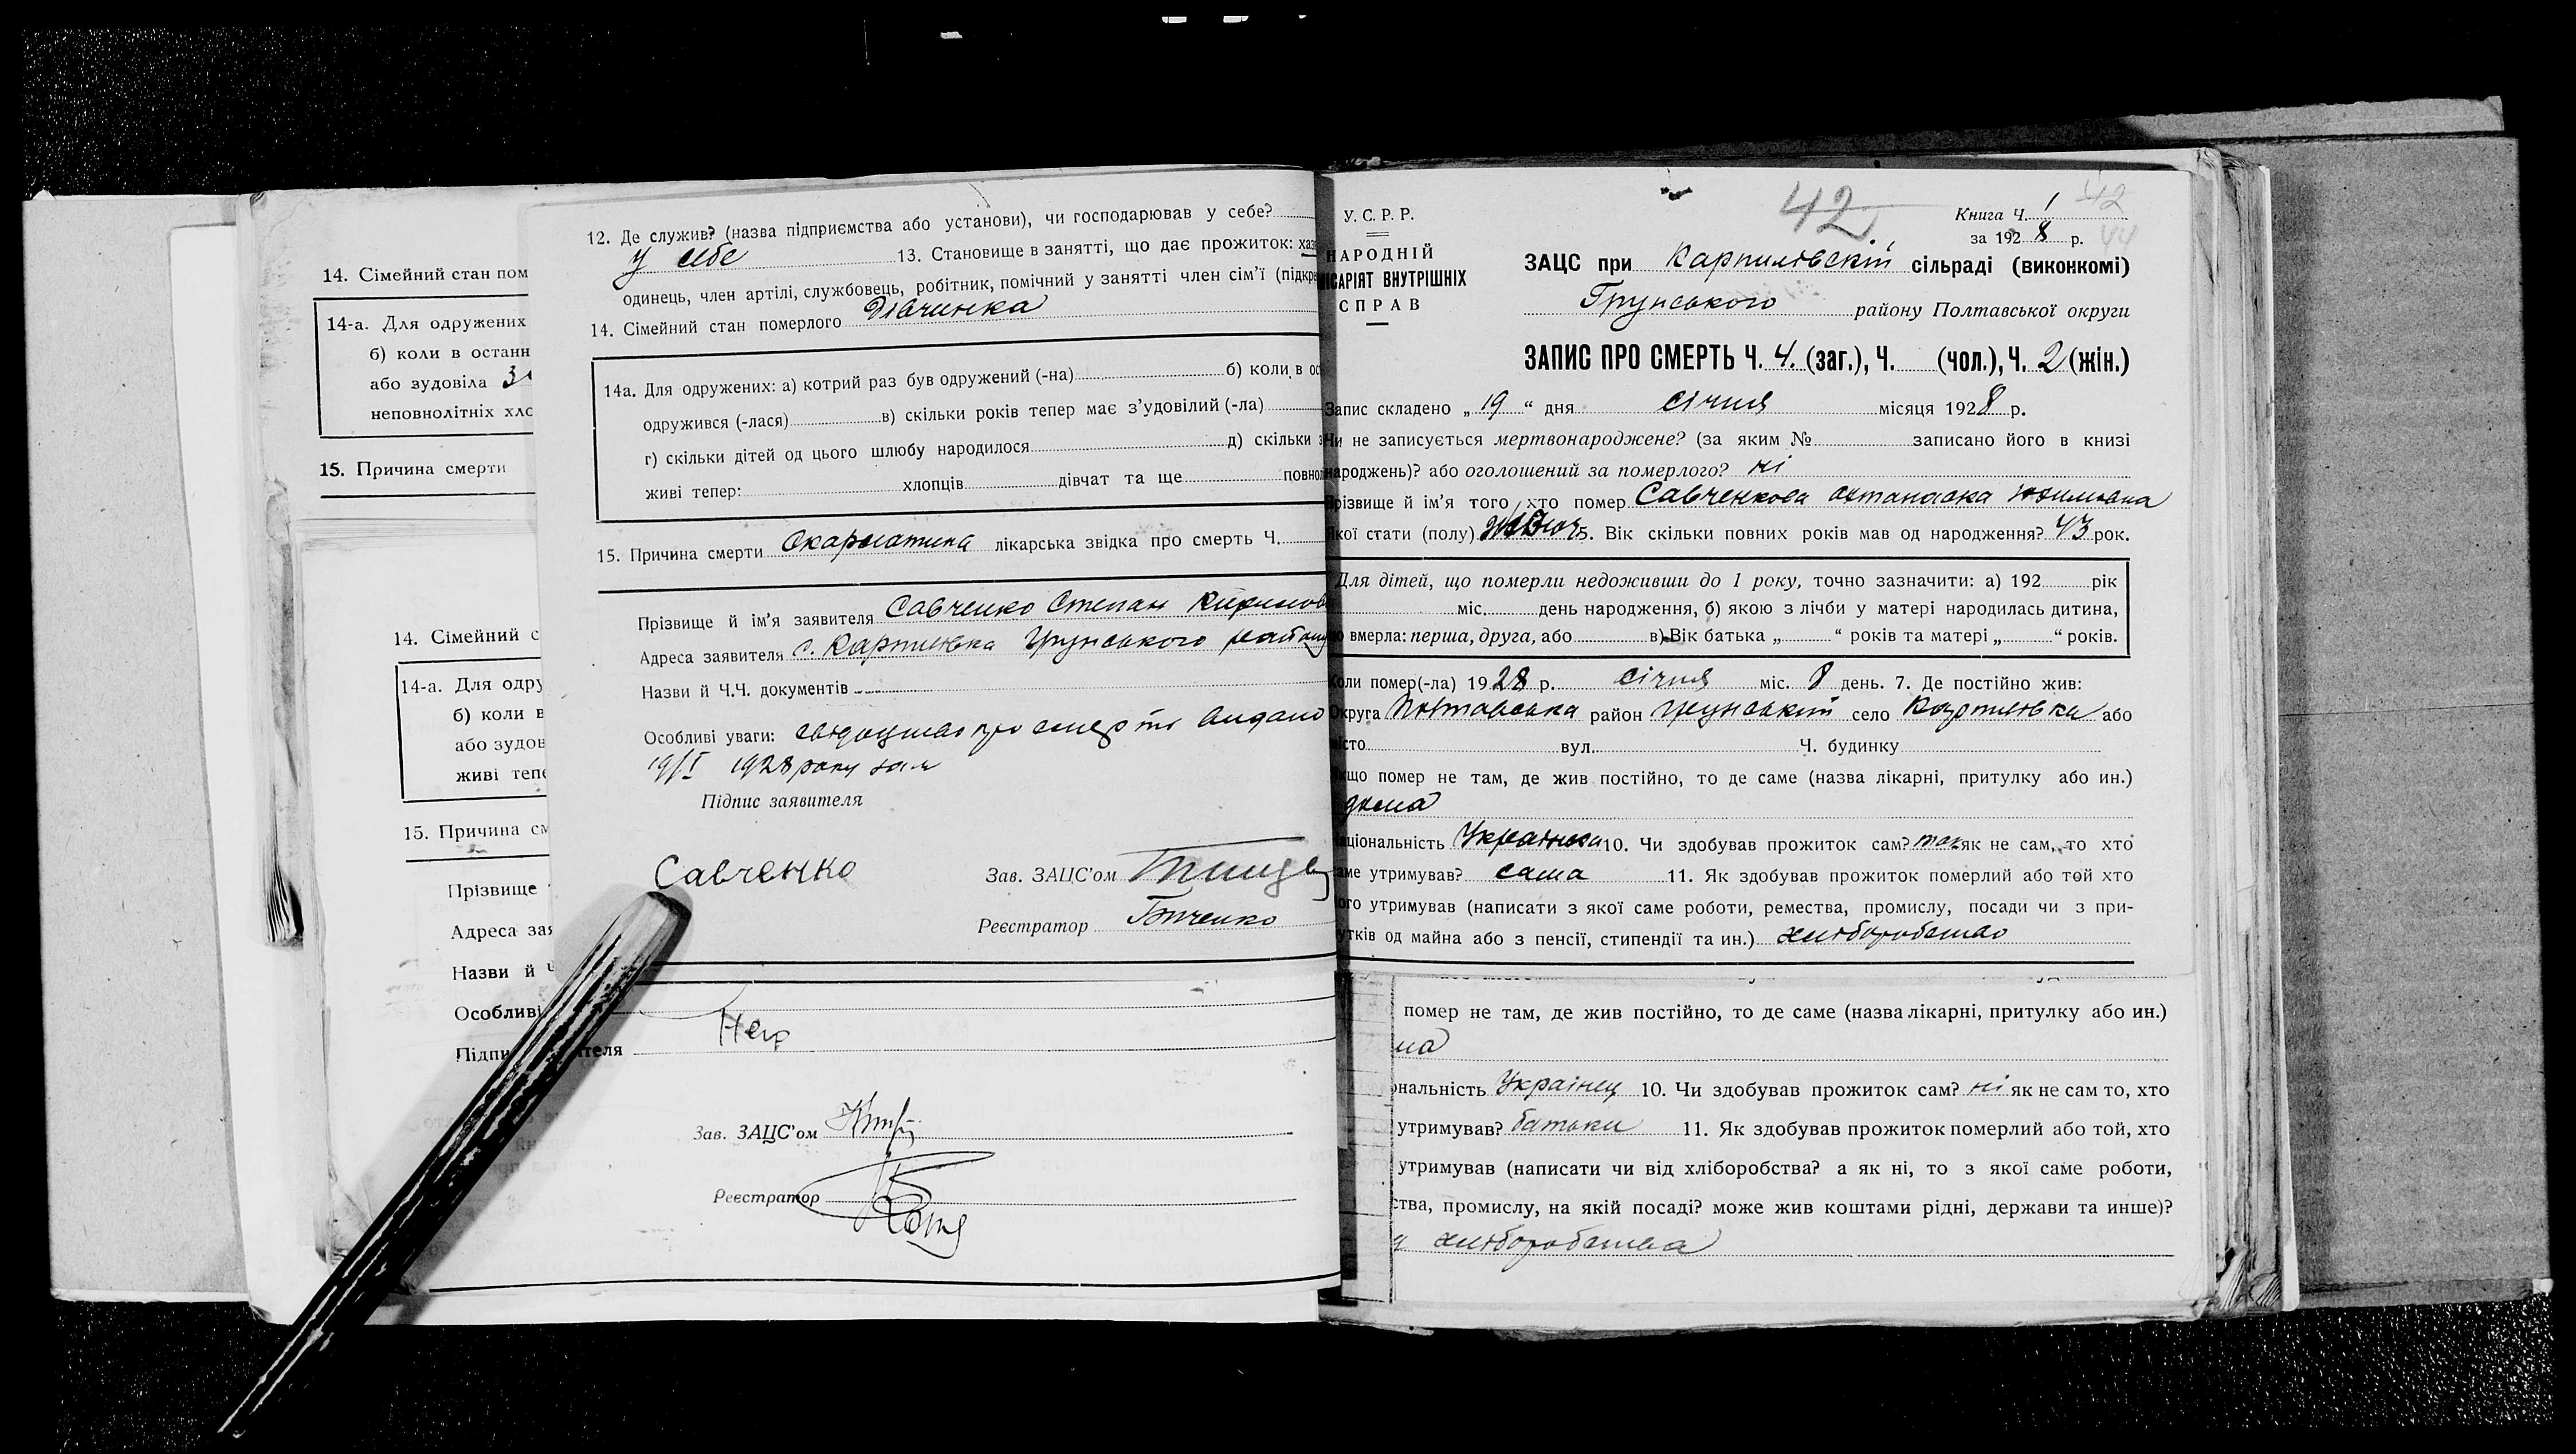 14. Сімейний стан пом
14-а. Для одружених
б) коли в останн
або зудовіла
неповнолітніх хло
15. Причина смерти
14. Сімейний с
14-а. Для одру
б) коли в
або зудов
живі тепе
15. Причина см
Прізвище
Адреса зая
Назви й Ч
Особливі
Підпи теля
12. Де служив? (назва підприємства або установи), чи господарював у себе?
У себе 13. Становище в занятті, що дає прожиток: хаз
одинець, член артілі, службовець, робітник, помічний у занятті член сім'ї (підкре
14. Сімейний стан померлого Дівчинка
14а. Для одружених: а) котрий раз був одружений (-на) б) коли в ос
одружився (-лася) в) скільки років тепер має з'удовілий (-ла)
г) скільки дітей од цього шлюбу народилося д) скільки з
живі тепер: хлопців дівчат та ще повнол
15. Причина смерти Скарлатина лікарська звідка про смерть Ч.
Прізвище й ім'я заявителя Савченко Степан
Адреса заявителя с. Карпилівка Грунського району
Назви й Ч.Ч. документів
Особливі уваги: свідоцтво про смерть видано
19/I 1928 року
Підпис заявителя
Савченко Зав. ЗАЦС'ом
Реєстратор
Зав. ЗАЦС'ом
Реєстратор
У. С. Р. Р.
НАРОДНІЙ
ІСАРІЯТ ВНУТРІШНІХ
СПРАВ
42
42
44
Книга Ч. 1
за 1928 р.
ЗАЦС при Карпилівскій сільраді (виконкомі)
Грунського району Полтавської округи
ЗАПИС ПРО СМЕРТЬ Ч. 4. (заг.), Ч. (чол.), Ч. 2 (жін.)
Запис складено „19“ дня січня місяця 1928 р.
Чи не записується мертвонароджене? (за яким № записано його в книзі
народжень)? або оголошений за померлого? ні
Прізвище й ім'я того, хто помер Савченкова
Якої стати (полу) 5. Вік скільки повних років мав од народження? 43 рок.
Для дітей, що померли недоживши до 1 року, точно зазначити: а) 192 рік
міс. день народження, б) якою з лічби у матері народилась дитина,
що вмерла: перша, друга, або в) Вік батька „ “ років та матері „ “ років.
Коли помер(-ла) 1928 р. січня міс. 8 день. 7. Де постійно жив:
Округа Полтавська район Грунський село Карпилівка або
місто вул. Ч. будинку
Якщо помер не там, де жив постійно, то де саме (назва лікарні, притулку або ин.)
дома
аціональність Українка 10. Чи здобував прожиток сам? так як не сам, то хто
саме утримував? сама 11. Як здобував прожиток померлий або той хто
його утримував (написати з якої саме роботи, ремества, промислу, посади чи з при-
утків од майна або з пенсії, стипендії та ин.) хліборобство
помер не там, де жив постійно, то де саме (назва лікарні, притулку або ин.)
ма
ональність Українец 10. Чи здобував прожиток сам? ні як не сам то, хто
утримував? батьки 11. Як здобував прожиток померлий або той, хто
утримував (написати чи від хліборобства? а як ні, то з якої саме роботи,
ства, промислу, на якій посаді? може жив коштами рідні, держави та инше)?
хліборобства